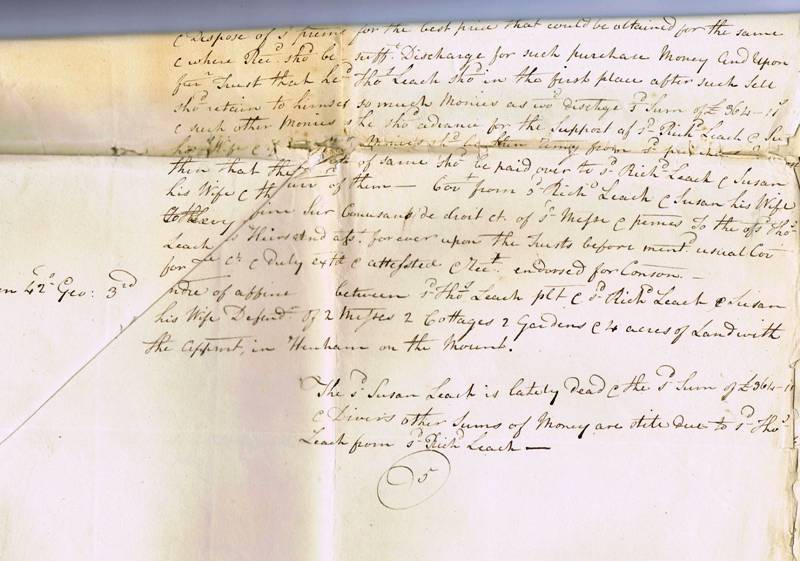 & Dispose of sd prems for the best price that could be obtained for the same
& where Rects shod be sufft Discharge for such purchase Money And Upon
furr Trust that he sd Thos Leach shod in the first place after such Sale
shod retain to himself so much Monies as wod dischge sd Sum of £364-11s
& such other Monies he shod advance for the Support of sd Richd Leach & Su
his Wife & then being from sd
then that the of same shod be paid over to sd Richd Leach & Susan
his Wife & the survr of them — Covt from sd Richd Leach & Susan his Wife
to Levy fine Sur Conusans de droit ct. of sd Messe & premes To the use of sd Thos
Leach Heirs and asss forever upon the Trusts before mentd usual Cov
for &c & Duly exted & attested & Rect endorsed for Conson. —
en 42d Geo: 3rd
ndre of a ffine between sd Thos Leach plt & sd Richd Leach & Susan
his Wife Defendts of 2 Messes 2 Cottages 2 Gardens & 4 acres of Land with
the Appurts, in Henham on the Mount.
The sd Susan Leach is lately dead & the sd Sum of £364-11
& Divers other Sums of Money are still due to sd Thos
Leach from sd Richd Leach —
5